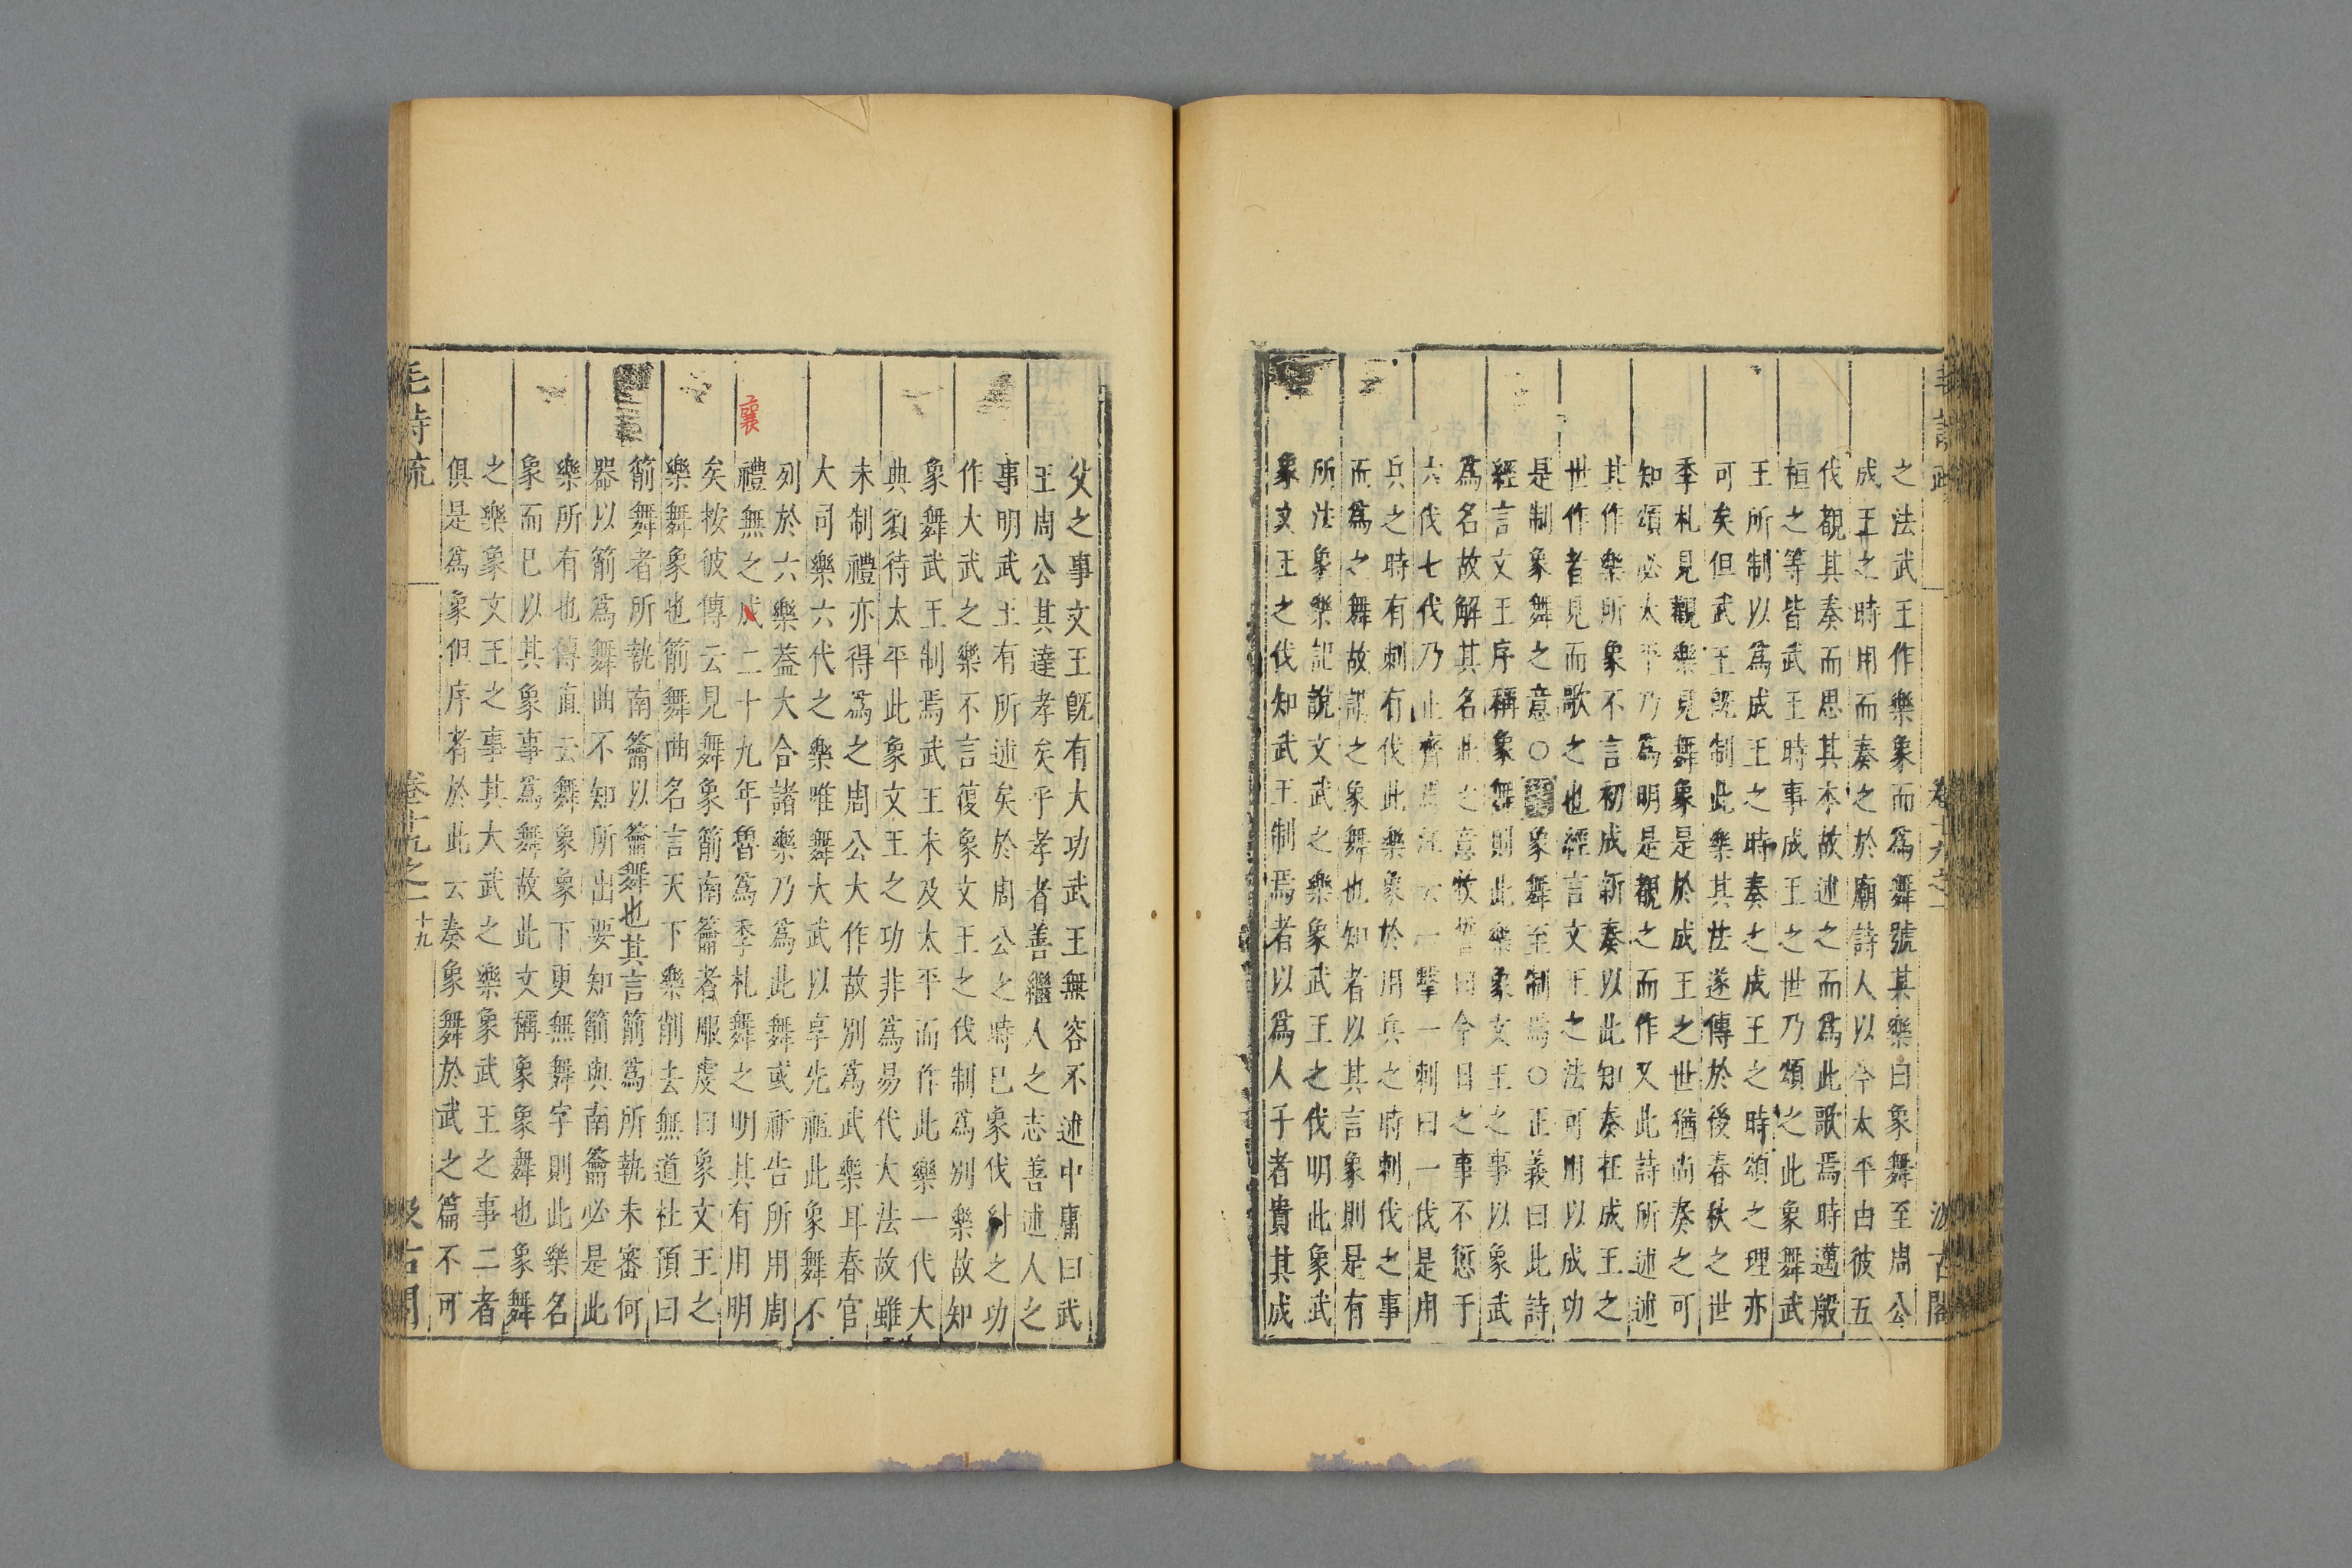 之法武王作樂象而爲舞號其樂曰象舞至周公
成王之時用而奏之於廟詩人以今太平由彼五
伐覩其奏而思其本故述之而爲此歌焉時邁般
桓之等皆武王時事成王之世乃頌之此象舞武
王所制以爲成王之時奏之成王之時頌之理亦
可矣但武王旣制此樂其法遂傳於後春秋之世
季札見觀樂見舞象是於成王之世猶尚奏之可
知頌必太平乃爲明是覩之而作又此詩所述述
其作樂所象不言初成新奏以此知奏在成王之
世作者見而歌之也經言文王之法可用以成功
是制象舞之意○象舞至制焉○正義曰此詩
經言文王序稱象舞則此樂象文王之事以象武
爲名故解其名此之意牧誓曰今日之事不愆于
六伐七伐乃止齊焉注云一擊一刺曰一伐是用
兵之時有刺有伐此樂象於用兵之時刺伐之事
而爲之舞故謂之象舞也知者以其言象則是有
所法象樂記說文武之樂象武王之伐明此象武
象文王之伐知武王制焉者以爲人子者貴其成
毛詩疏
卷十九之一
汲古閣
父之事文王旣有大功武王無容不述中庸曰武
王周公其達孝矣乎孝者善繼人之志善述人之
事明武王有所述矣於周公之時已象伐紂之功
作大武之樂不言復象文王之伐制爲別樂故知
象舞武王制焉武王未及太平而作此樂一代大
典須待太平此象文王之功非爲易代大法故雖
未制禮亦得爲之周公大作故別爲武樂耳春官
大司樂六代之樂唯舞大武以享先祖此象舞不
列於六樂蓋大合諸樂乃爲此舞或祈告所用周
禮無之成二十九年魯爲季札舞之明其有用明
襄
矣按彼傳云見舞象箾南籥者服虔曰象文王之
樂舞象也箾舞曲名言天下樂削去無道杜預曰
箾舞者所執南籥以籥舞也其言箾爲所執未審何
器以箾爲舞曲不知所出要知箾與南籥必是此
樂所有也傳直云舞象象下更無舞字則此樂名
象而已以其象事爲舞故此文稱象象舞也象舞
之樂象文王之事其大武之樂象武王之事二者
俱是爲象但序者於此云奏象舞於武之篇不可
毛詩疏
卷十九之一
十九
汲古閣